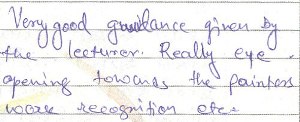 Very good guidance given by
the lecturer. Really eye
opening towards the painters
work recognition etc.